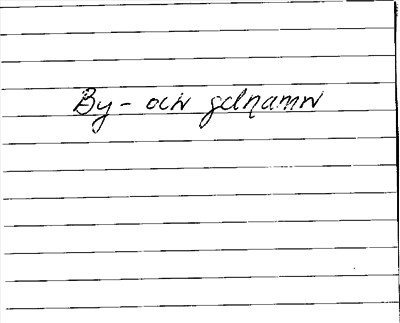 By- och gdnamn